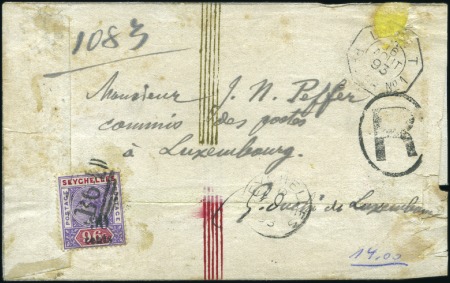 1083
Monsieur J. N. Peffer
commis des postes
à Luxembourg.
R
G. Duché de Luxembourg
SEYCHELLES
POSTAGE
96
B64
14.00